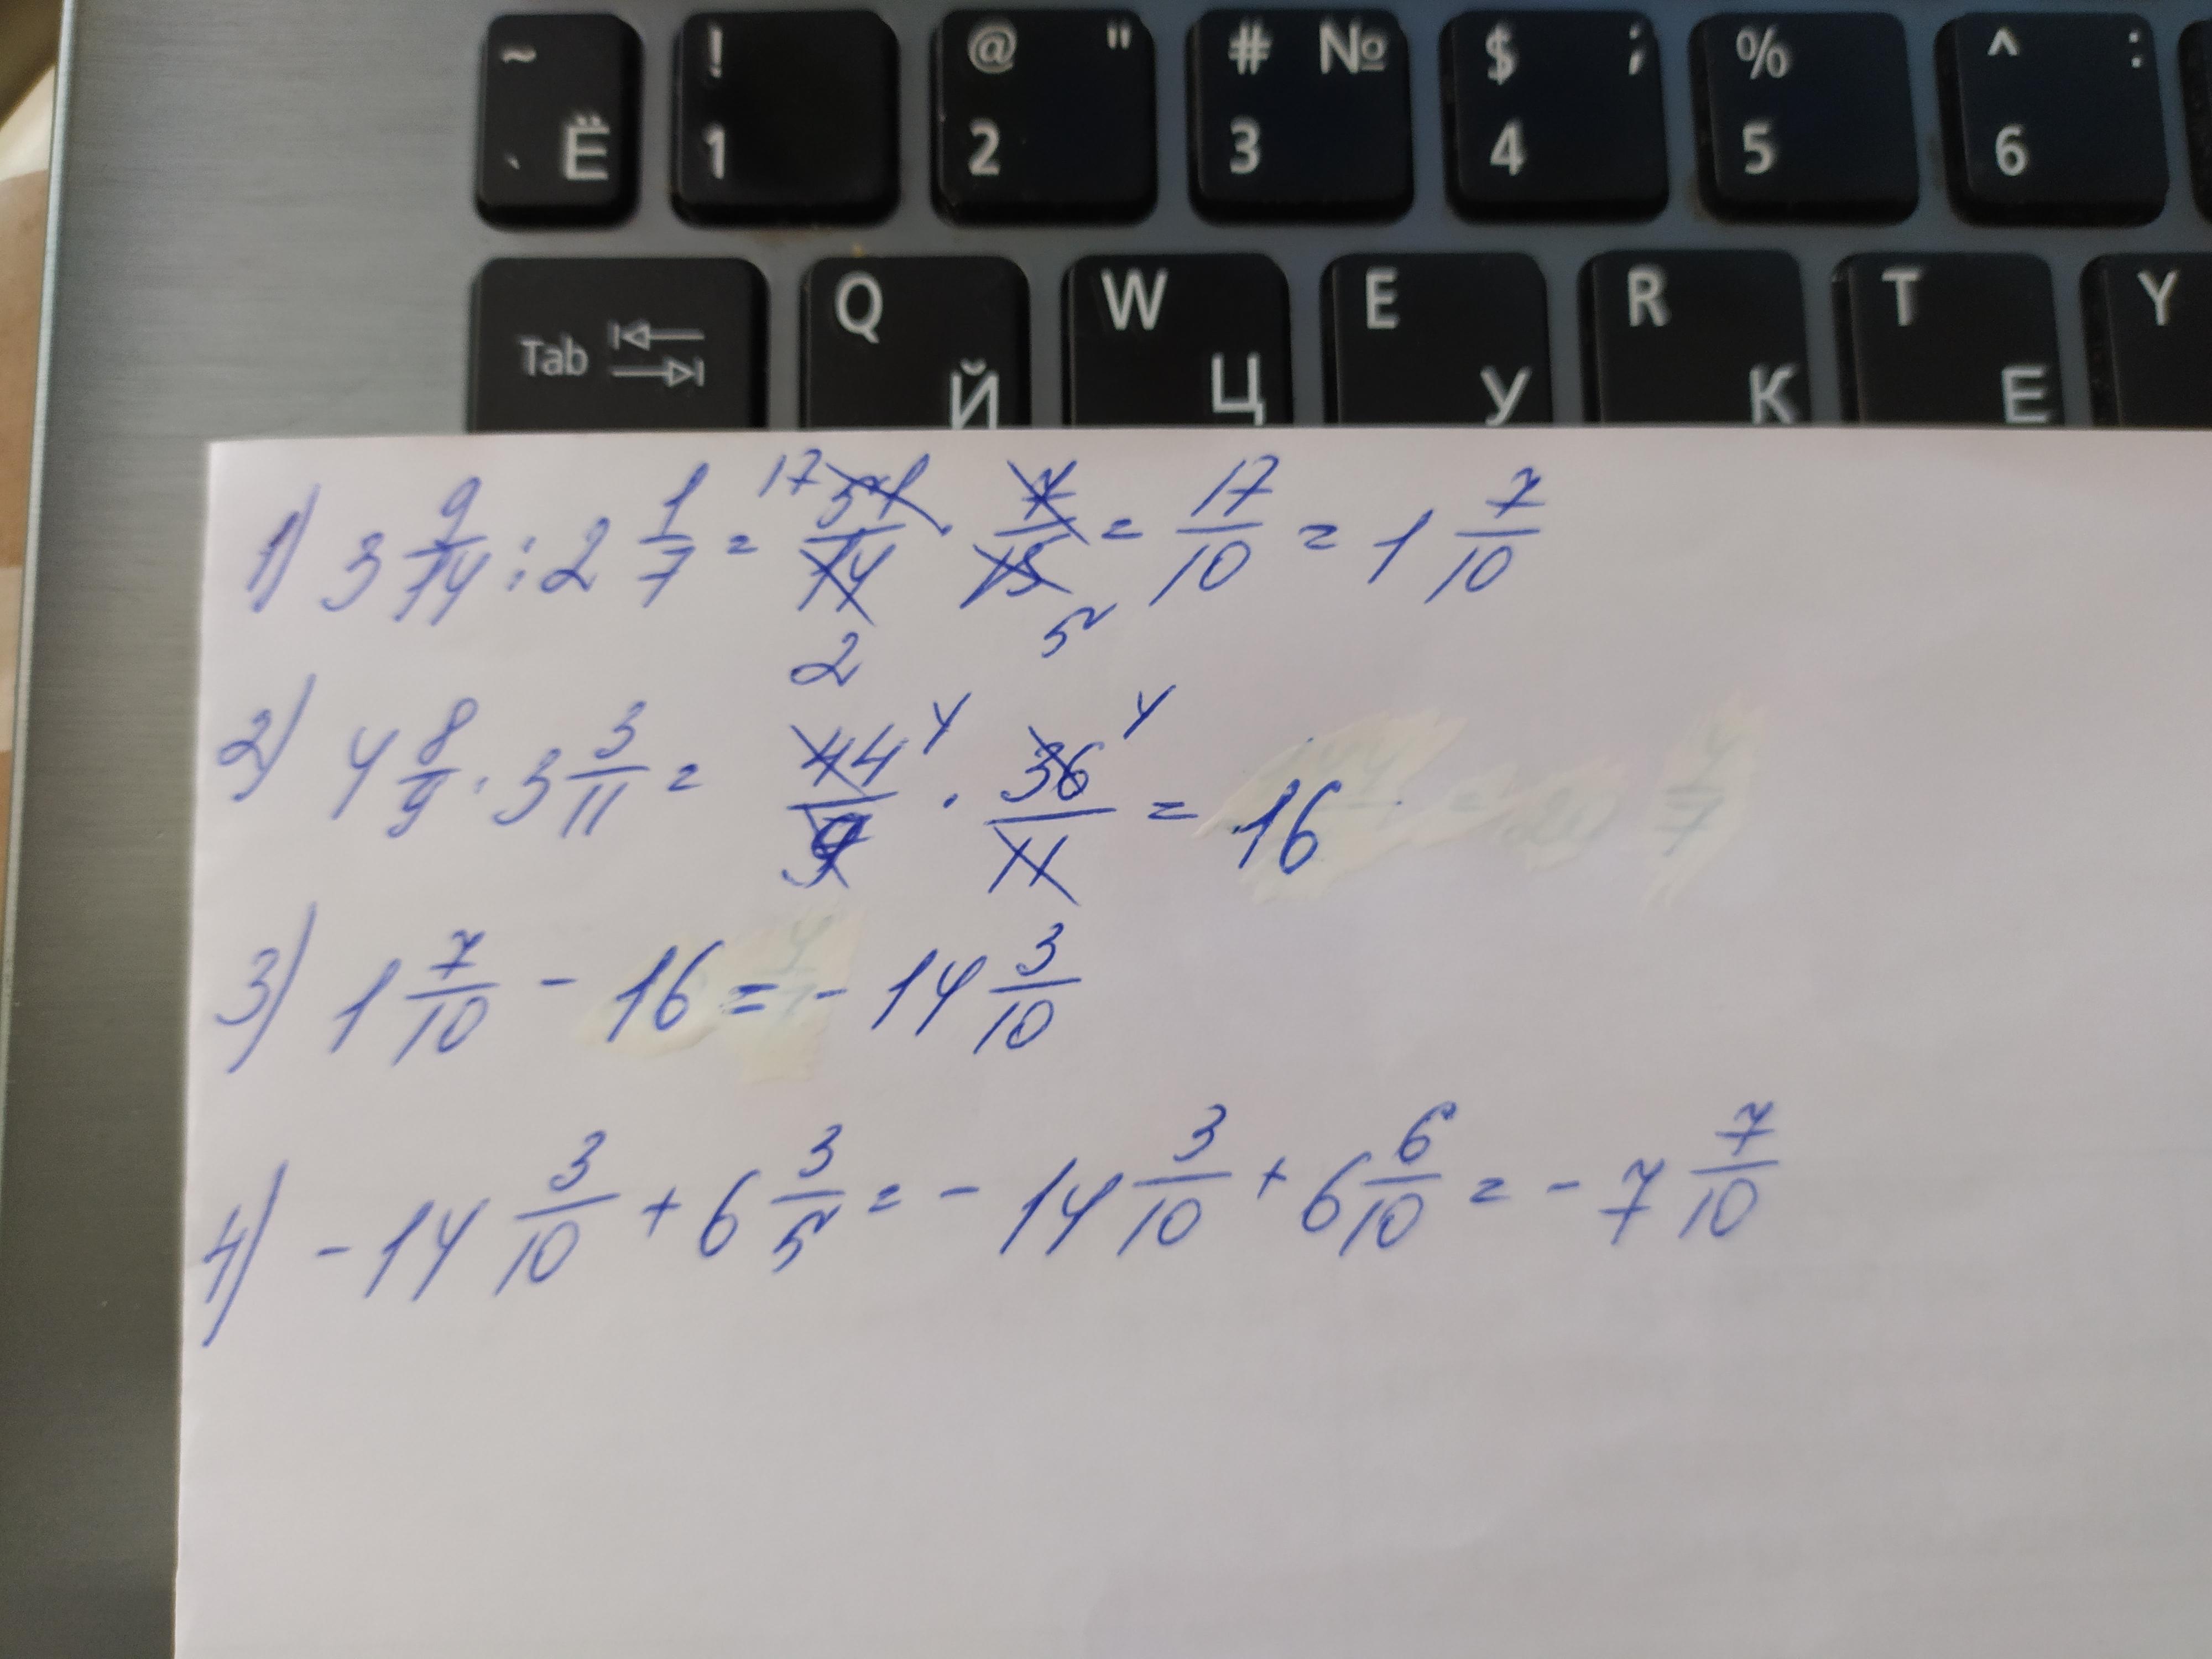 ~ Ё ! 1 @ " 2 # № 3 $ ; 4 % 5 ^ : 6
Tab Q Й W Ц E У R К T Е Y
1) 3 9/14 : 2 1/7 = 17 51/14 2 · 7/15 5 = 17/10 = 1 7/10
2) 4 8/9 · 3 3/11 = 44/9 4 · 36/11 4 = 16
3) 1 7/10 - 16 = - 14 3/10
4) - 14 3/10 + 6 3/5 = - 14 3/10 + 6 6/10 = - 7 7/10